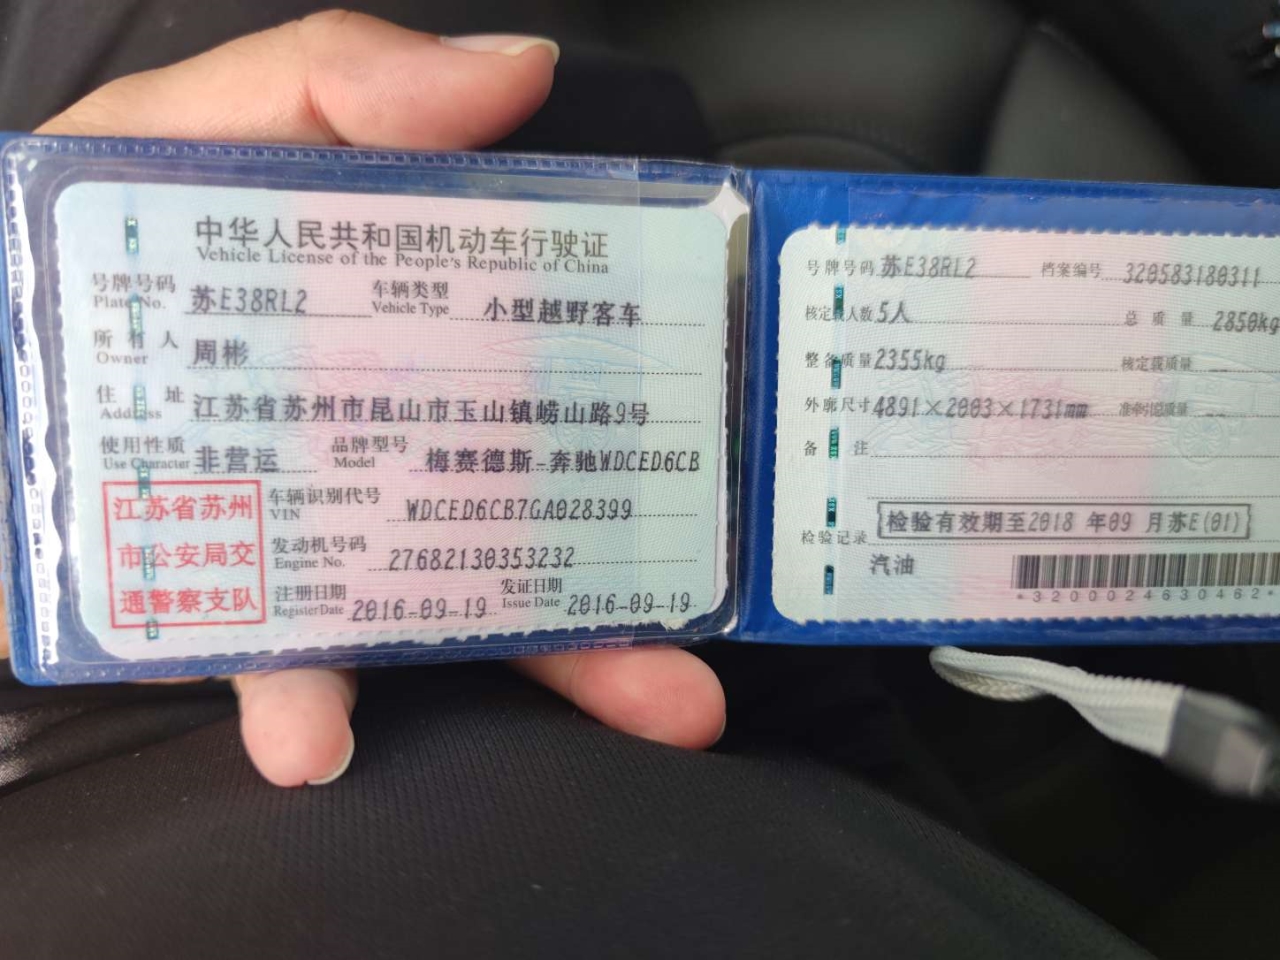 中华人民共和国机动车行驶证
Vehicle License of the People's Republic of China
号牌号码 苏E38RL2 车辆类型 小型越野客车
Plate No. Vehicle Type
所有人 周彬
Owner
住址 江苏省苏州市昆山市玉山镇崂山路9号
Address
使用性质 非营运 品牌型号 梅赛德斯-奔驰WDCED6CB
Use Character Model
江苏省苏州
市公安局交
通警察支队
车辆识别代号 WDCED6CB7GA028399
VIN
发动机号码 27682130353232
Engine No.
注册日期 2016-09-19 发证日期 2016-09-19
Register Date Issue Date
号牌号码 苏E38RL2 档案编号 320583180311
核定载人数 5人 总质量 2850kg
整备质量 2355kg 核定载质量
外廓尺寸 4891×2003×1731mm 准牵引总质量 --
备注
检验记录 检验有效期至2018 年09 月苏E(01)
汽油
*3200024630462*